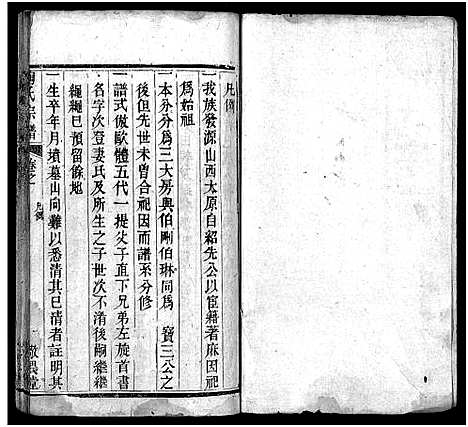 凡例
一我族發源山西太原自紹先公以宦籍著麻因祀
為始祖
一本分分為三大房與伯剛伯琳同為 寶三公之
後但先世未曾合祀因而譜系分修
一譜式倣歐體五代一提父子直下兄弟左旋首書
名字次登妻氏及所生之子世次不淆後嗣繼繼
繩繩已預留餘地
一生卒年月墳墓山向難以悉清其已清者註明其
氏宗譜
卷之
凡例